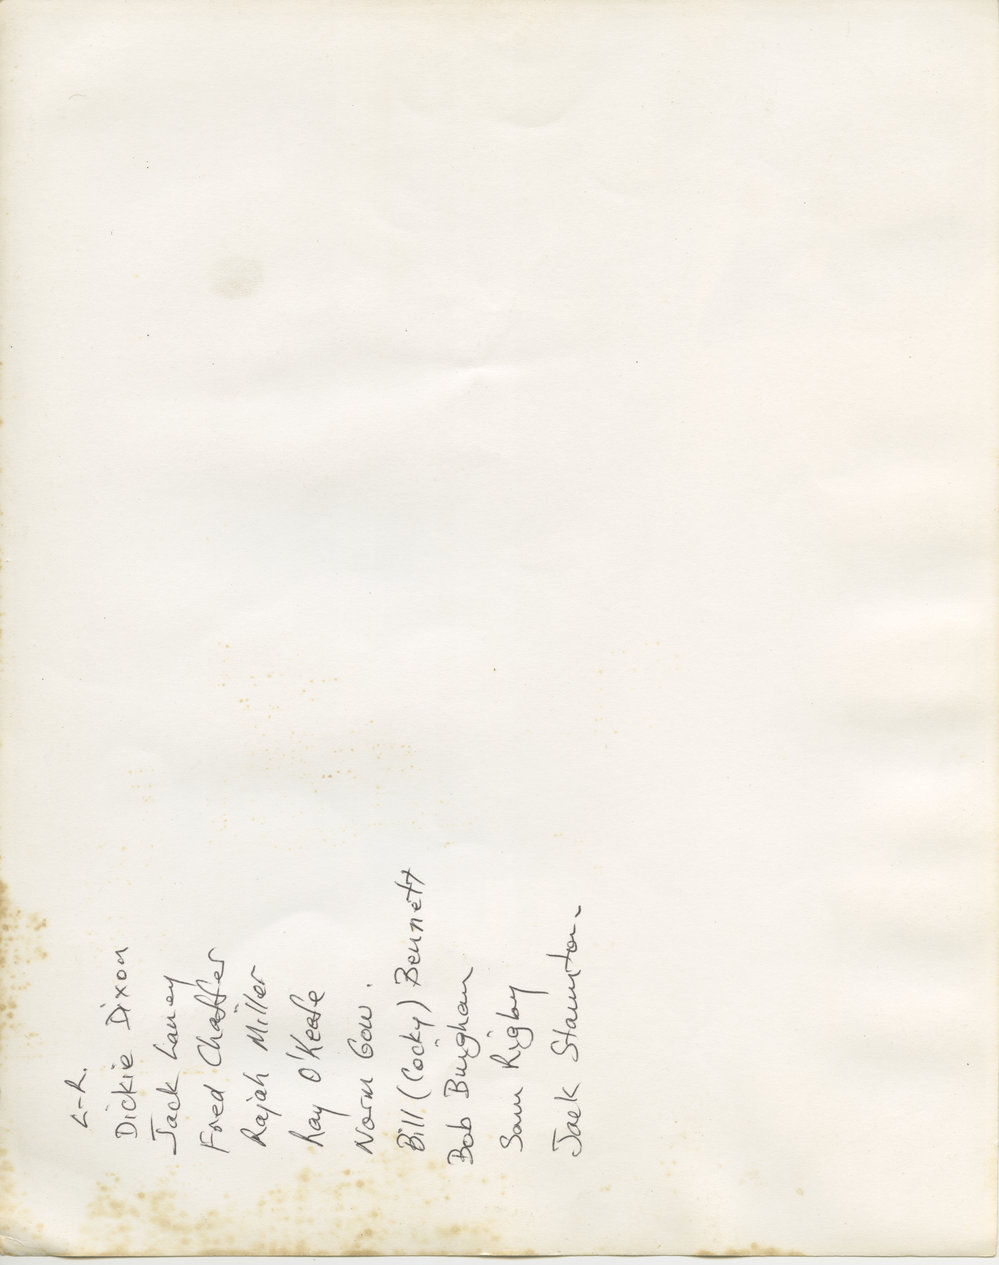 L-R.
Dickie Dixon
Jack Laney
Fred Chaffer
Rajah Miller
Ray O'Keafe
Norm Gow.
Bill (Cocky) Bennett
Bob Bingham
Sam Rigby
Jack Staunton